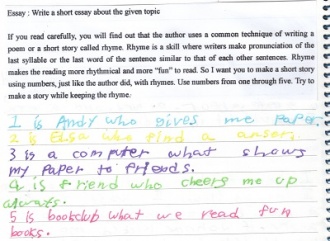 Essay : Write a short essay about the given topic
If you read carefully, you will find out that the author uses a common technique of writing a
poem or a short story called rhyme. Rhyme is a skill where writers make pronunciation of the
last syllable or the last word of the sentence similar to that of each other sentences. Rhyme
makes the reading more rhythmical and more "fun" to read. So I want you to make a short story
using numbers, just like the author did, with rhymes. Use numbers from one through five. Try to
make a story while keeping the rhyme.
1 is Andy who gives me Paper.
2 is Elsa who find a
3 is a computer what shows
my Paper to friends.
4 is friend who cheers me up
always.
5 is bookclub what we read fun
books.